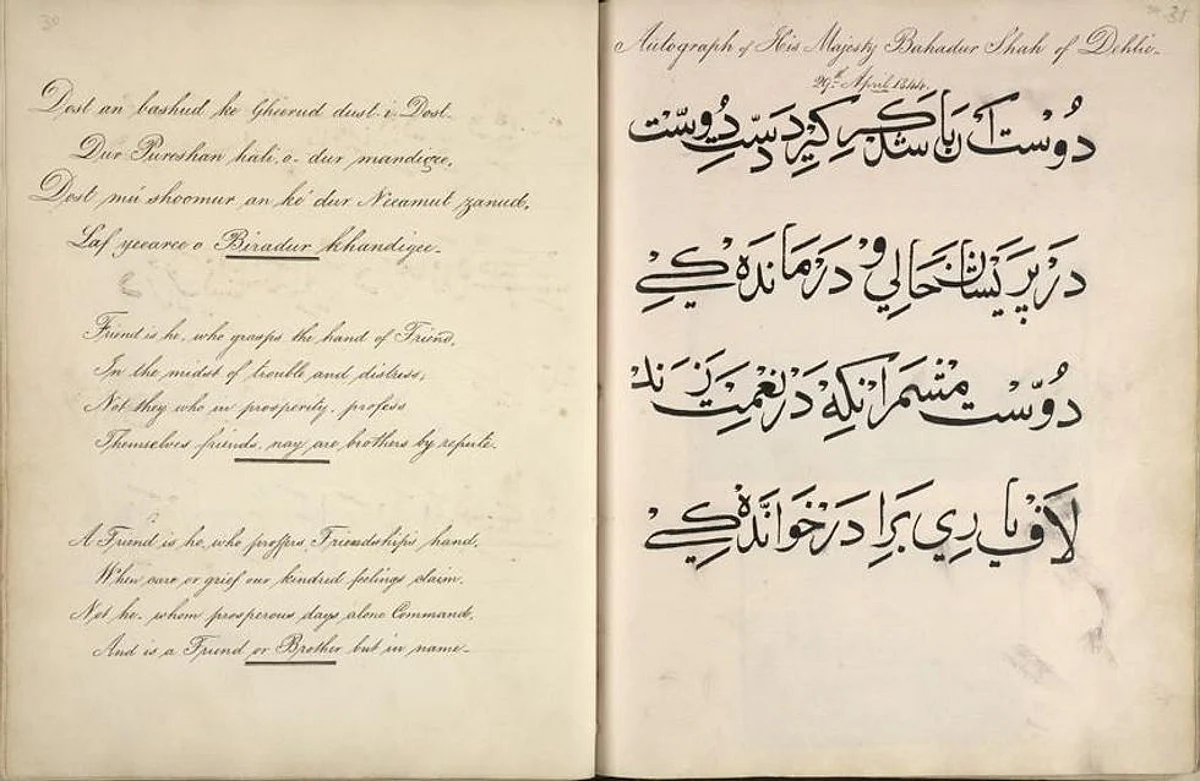 30
Dost an bashud ke Gheerud dust-i-Dost.
Dur Pureshan hali-o-dur mandigee,
Dost mú shoomur an ké dur Neeamut zanud,
Laf yeearee o Biradur khandigee.
Friend is he, who grasps the hand of Friend,
In the midst of trouble and distress,
Not they who in prosperity, profess
Themselves friends, nay are brothers by repute.
A Friend is he, who proffers Friendship's hand,
When care or grief our kindred feelings claim.
Not he, whom prosperous days alone Command,
And is a Friend or Brother but in name.
31
Autograph of His Majesty Bahadur Shah of Dehlie.
29th April 1844.
دوست آن باشد كه كيرد دست دوست
در پريشان حالي و در ماندهكي
دوست مشمر آنكه در نعمت زند
لاف ياري برادر خواندهكي